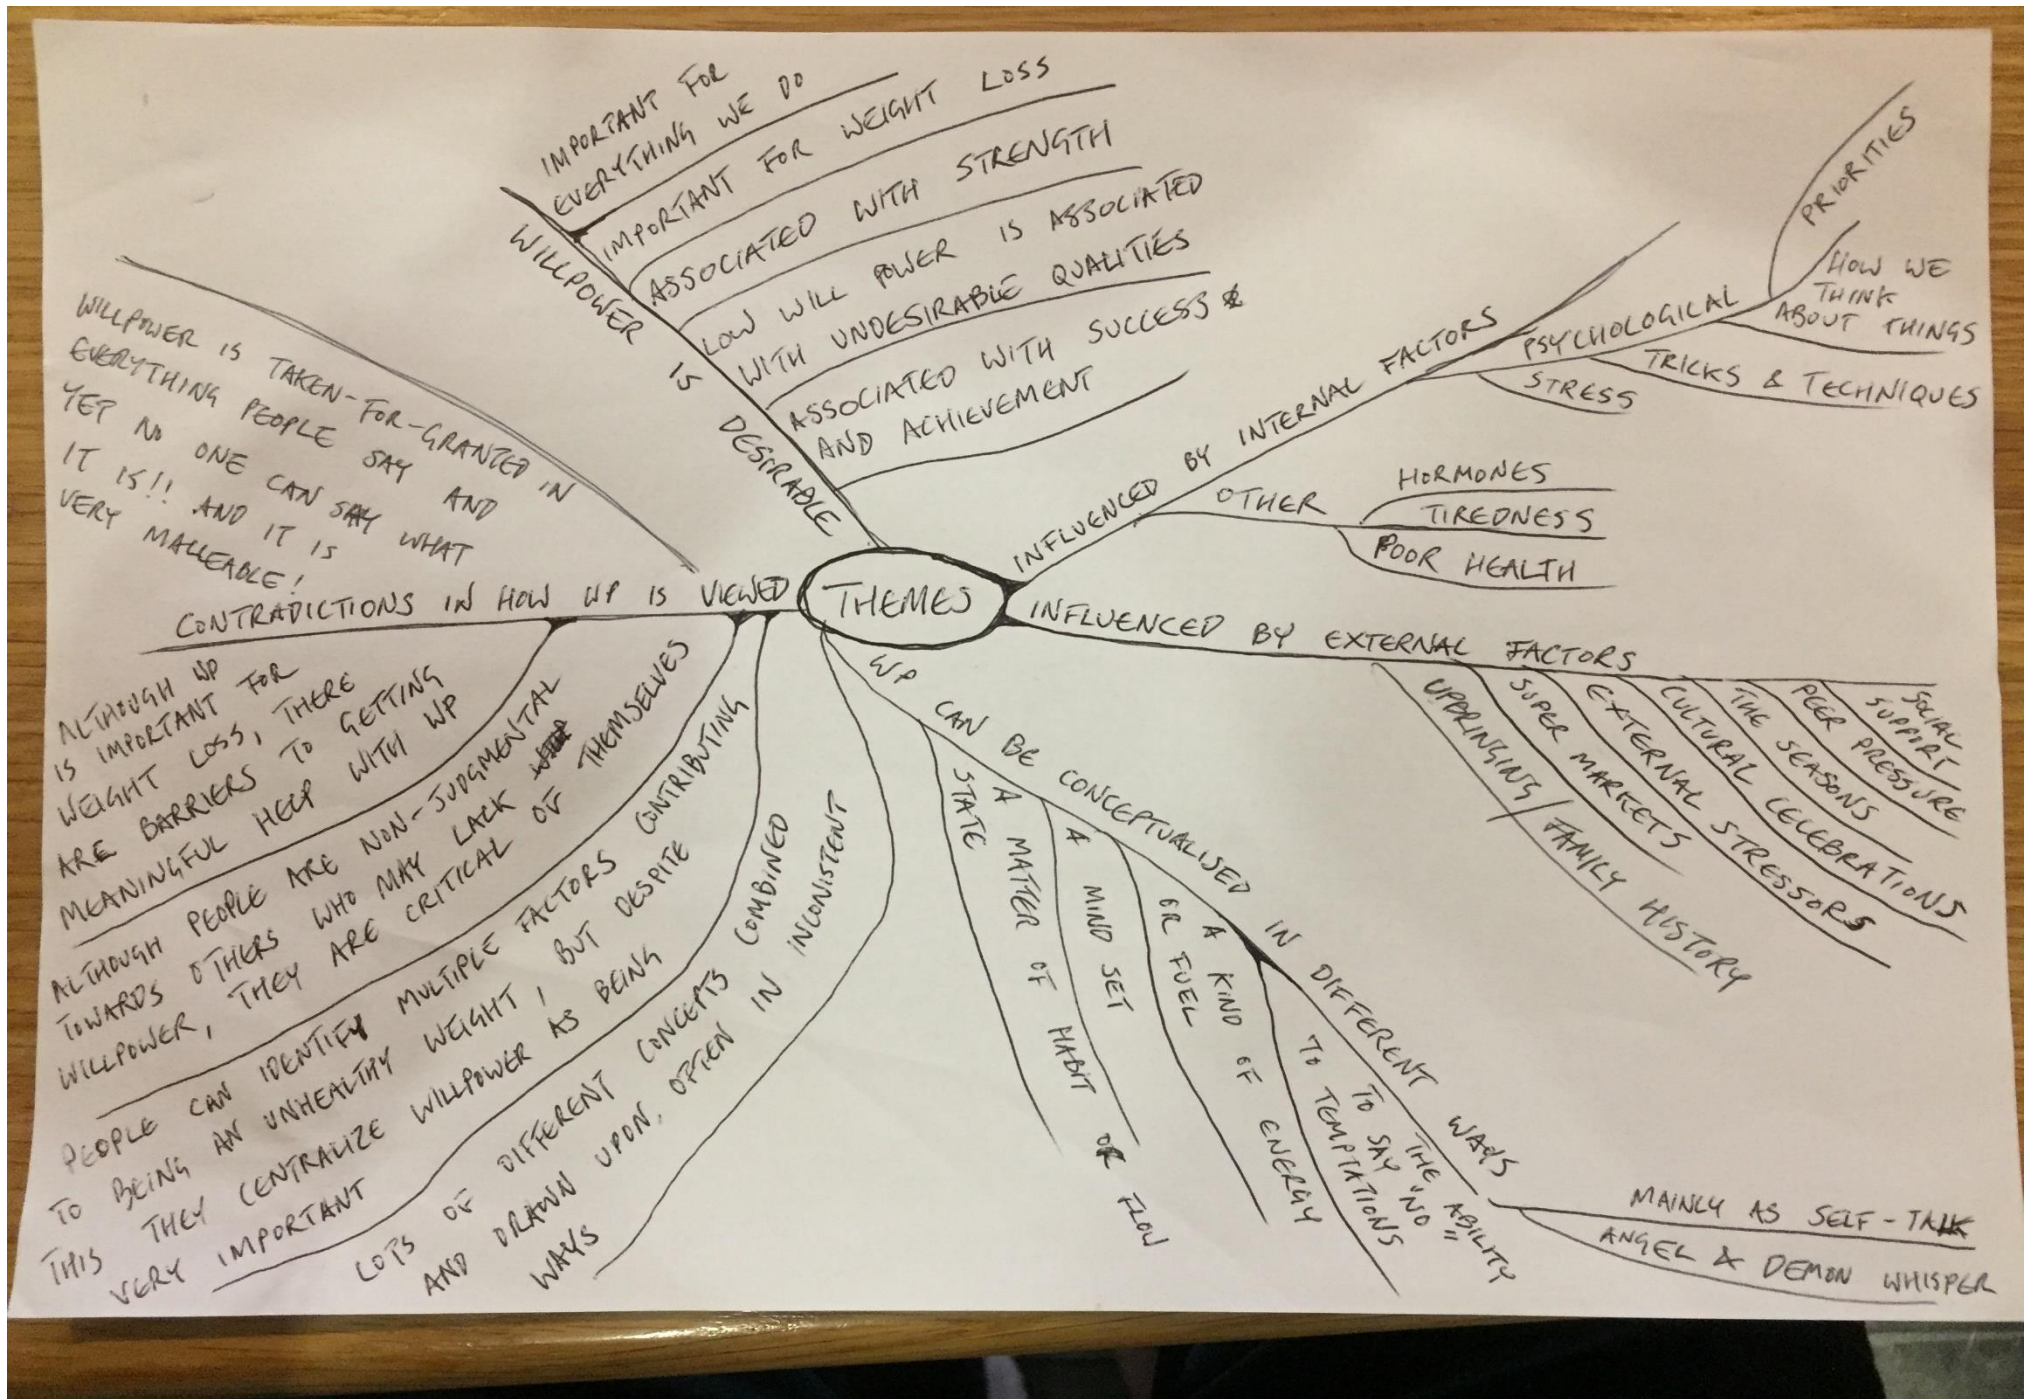 THEMES
WILLPOWER IS DESIRABLE
IMPORTANT FOR
EVERYTHING WE DO
IMPORTANT FOR WEIGHT LOSS
ASSOCIATED WITH STRENGTH
LOW WILL POWER IS ASSOCIATED
WITH UNDESIRABLE QUALITIES
ASSOCIATED WITH SUCCESS
AND ACHIEVEMENT
INFLUENCED BY INTERNAL FACTORS
PSYCHOLOGICAL
PRIORITIES
HOW WE
THINK
ABOUT THINGS
TRICKS & TECHNIQUES
STRESS
OTHER
HORMONES
TIREDNESS
POOR HEALTH
INFLUENCED BY EXTERNAL FACTORS
SOCIAL
SUPPORT
PEER PRESSURE
THE SEASONS
CULTURAL CELEBRATIONS
EXTERNAL STRESSORS
SUPER MARKETS
UPBRINGING/FAMILY HISTORY
WP CAN BE CONCEPTUALISED IN DIFFERENT WAYS
MAINLY AS SELF-TALK
ANGEL & DEMON WHISPER
THE ABILITY
TO SAY "NO"
TO TEMPTATIONS
A KIND OF ENERGY
OR FUEL
A MIND SET
A MATTER OF HABIT OR FLOW
STATE
CONTRADICTIONS IN HOW WP IS VIEWED
WILLPOWER IS TAKEN-FOR-GRANTED IN
EVERYTHING PEOPLE SAY AND
YET NO ONE CAN SAY WHAT
IT IS!! AND IT IS
VERY MALLEABLE!
ALTHOUGH WP
IS IMPORTANT FOR
WEIGHT LOSS, THERE
ARE BARRIERS TO GETTING
MEANINGFUL HELP WITH WP
ALTHOUGH PEOPLE ARE NON-JUDGMENTAL
TOWARDS OTHERS WHO MAY LACK
WILLPOWER, THEY ARE CRITICAL OF THEMSELVES
PEOPLE CAN IDENTIFY MULTIPLE FACTORS CONTRIBUTING
TO BEING AN UNHEALTHY WEIGHT, BUT DESPITE
THIS THEY CENTRALIZE WILLPOWER AS BEING
VERY IMPORTANT
LOTS OF DIFFERENT CONCEPTS COMBINED
AND DRAWN UPON, OFTEN IN INCONISTENT
WAYS